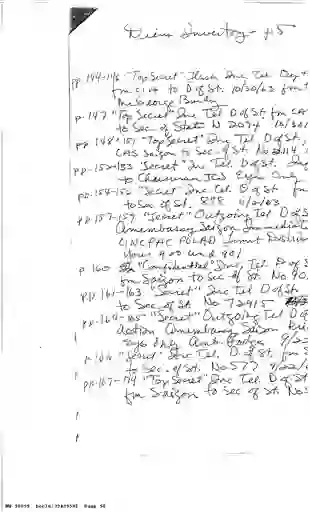 Diem Inventory - #5
pp. 144-146 "Top Secret" Flash Inc Tel Dep
fm CIA to D of St. 10/30/63 from
McGeorge Bundy
p. 147 "Top Secret" Inc Tel D of St. fm CA
to Sec of State N 2094 10/30/
pp 148-151 "Top Secret" Inc Tel D of St.
CAS Saigon to Sec of St. No 2114
pp-152-153 "Secret" Inc Tel D of St.
to Chairman JCS Eyes Only
pp. 154-156 "Secret" Inc Tel. D of St fm
to Sec of St. 888 11/2/63
pp. 157-159 "Secret" Outgoing Tel D of S
Amembassy Saigon Immediate
CINCPAC POLAD Limit Distrib
Yours 900 and 901
p 160 "Confidential" Inc Tel D of S
fm Saigon to Sec of St No 90
pp. 161-163 "Secret" Inc Tel D of St
to Sec of St No 73915
pp. 164-165 "Secret" Outgoing Tel D of
Action Amembassy Saigon
Eyes Only Amb Lodge 9/2
p. 166 "Secret" Inc Tel. D of St. fm S
to Sec of St. No 577 9/22/
pp. 167-174 "Top Secret" Inc Tel. D of St
fm Saigon to Sec of St. No
Page 50